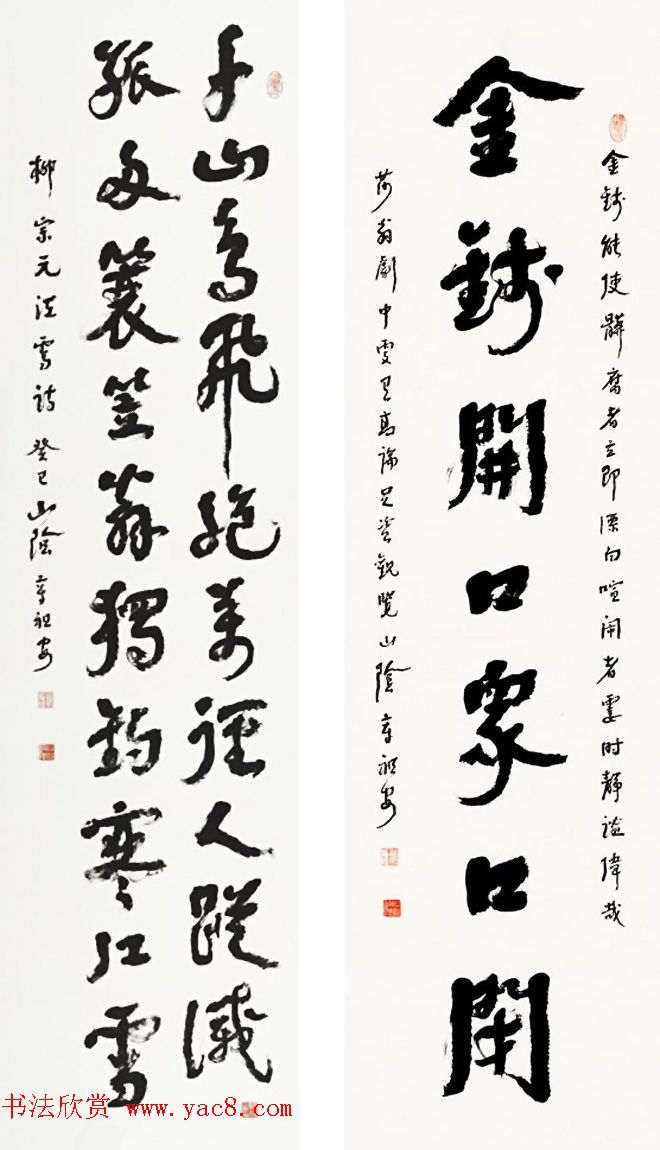 金錢能使髒腐者立即漂白喧闹者霎时靜謐偉哉
金錢開口眾口閉
莎翁劇中高論足资觀覽山陰章祖安
千山鳥飛絕萬徑人蹤滅
孤舟蓑笠翁獨釣寒江雪
柳宗元江雪詩癸巳山陰章祖安
书法欣赏 www.yac8.com